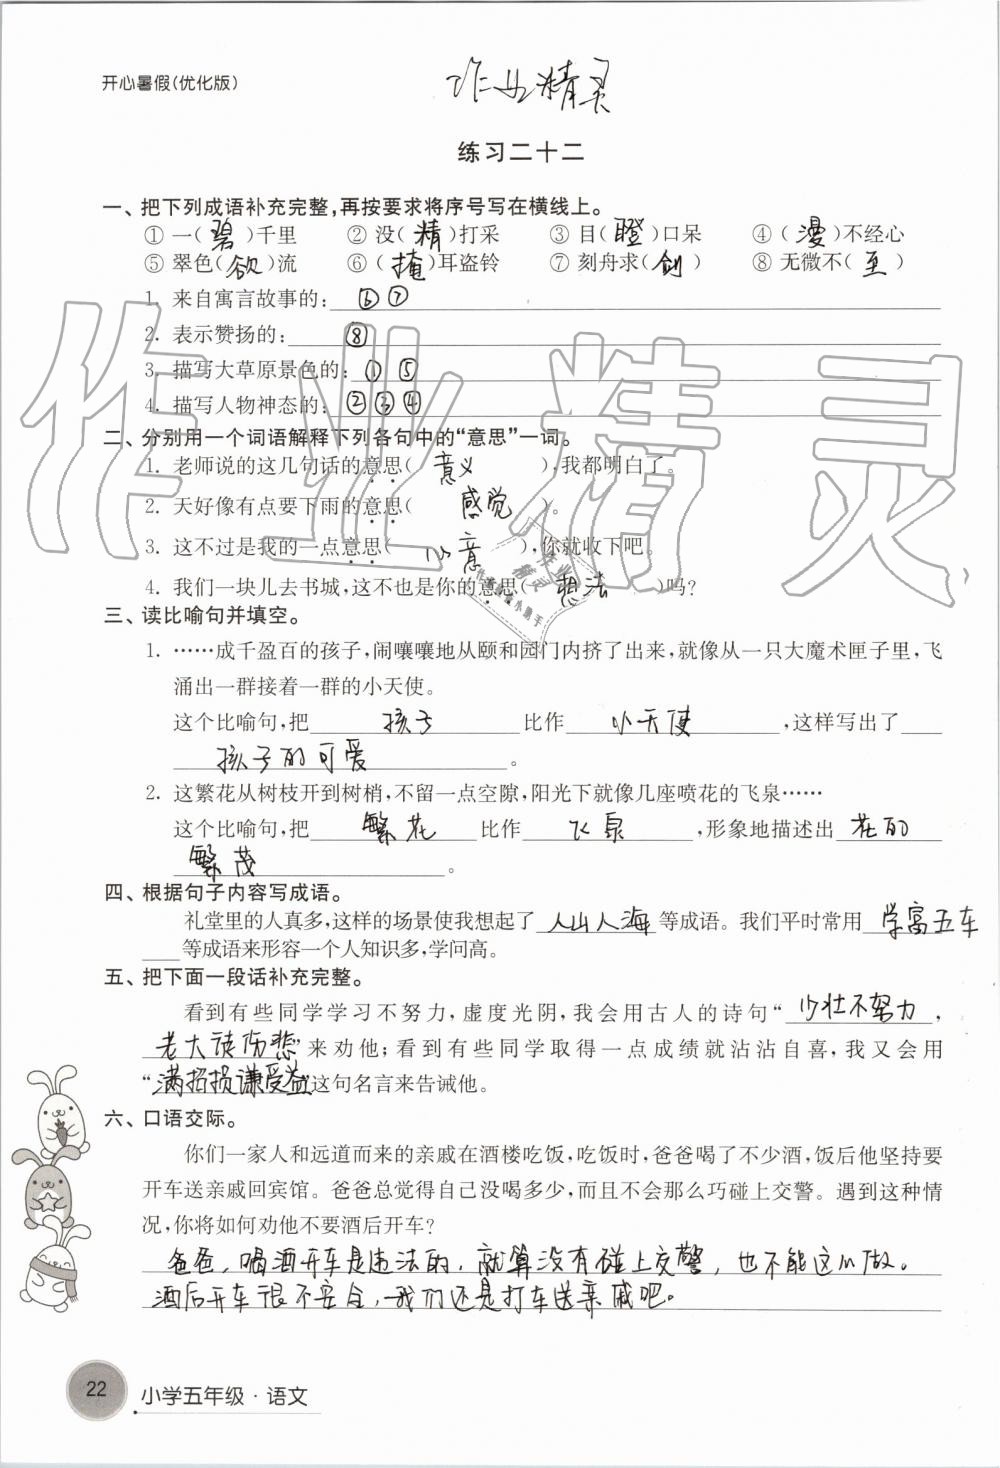 开心暑假(优化版)
作业精灵
练习二十二
一、把下列成语补充完整,再按要求将序号写在横线上。
① 一(碧)千里 ② 没(精)打采 ③ 目(瞪)口呆 ④ (漫)不经心
⑤ 翠色(欲)流 ⑥ (掩)耳盗铃 ⑦ 刻舟求(剑) ⑧ 无微不(至)
1. 来自寓言故事的: ⑥⑦
2. 表示赞扬的: ⑧
3. 描写大草原景色的: ① ⑤
4. 描写人物神态的: ②③④
二、分别用一个词语解释下列各句中的“意思”一词。
1. 老师说的这几句话的意思( 意义 ),我都明白了。
2. 天好像有点要下雨的意思( 感觉 )。
3. 这不过是我的一点意思( 心意 ),你就收下吧。
4. 我们一块儿去书城,这不也是你的意思( 想法 )吗?
三、读比喻句并填空。
1. ……成千盈百的孩子,闹嚷嚷地从颐和园门内挤了出来,就像从一只大魔术匣子里,飞
涌出一群接着一群的小天使。
这个比喻句,把 孩子 比作 小天使 ,这样写出了
孩子的可爱 。
2. 这繁花从树枝开到树梢,不留一点空隙,阳光下就像几座喷花的飞泉……
这个比喻句,把 繁花 比作 飞泉 ,形象地描述出 花的
繁茂 。
四、根据句子内容写成语。
礼堂里的人真多,这样的场景使我想起了 人山人海 等成语。我们平时常用 学富五车
等成语来形容一个人知识多,学问高。
五、把下面一段话补充完整。
看到有些同学学习不努力,虚度光阴,我会用古人的诗句“ 少壮不努力 ,
老大徒伤悲”来劝他;看到有些同学取得一点成绩就沾沾自喜,我又会用
“满招损谦受益”这句名言来告诫他。
六、口语交际。
你们一家人和远道而来的亲戚在酒楼吃饭,吃饭时,爸爸喝了不少酒,饭后他坚持要
开车送亲戚回宾馆。爸爸总觉得自己没喝多少,而且不会那么巧碰上交警。遇到这种情
况,你将如何劝他不要酒后开车?
爸爸,喝酒开车是违法的,就算没有碰上交警,也不能这么做。
酒后开车很不安全,我们还是打车送亲戚吧。
22 小学五年级·语文